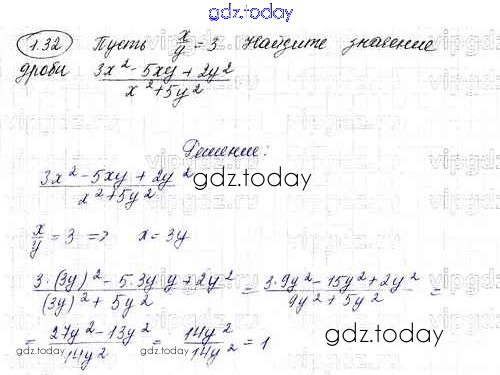 gdz.today
1.32 Пусть x/y = 3 Найдите значение
дроби (3x² - 5xy + 2y²)/(x² + 5y²)
Решение:
(3x² - 5xy + 2y²)/(x² + 5y²)
gdz.today
x/y = 3 => x = 3y
(3·(3y)² - 5·3y y + 2y²)/((3y)² + 5y²) = (3·9y² - 15y² + 2y²)/(9y² + 5y²) =
= (27y² - 13y²)/(14y²) = (14y²)/(14y²) = 1
gdz.today
gdz.today